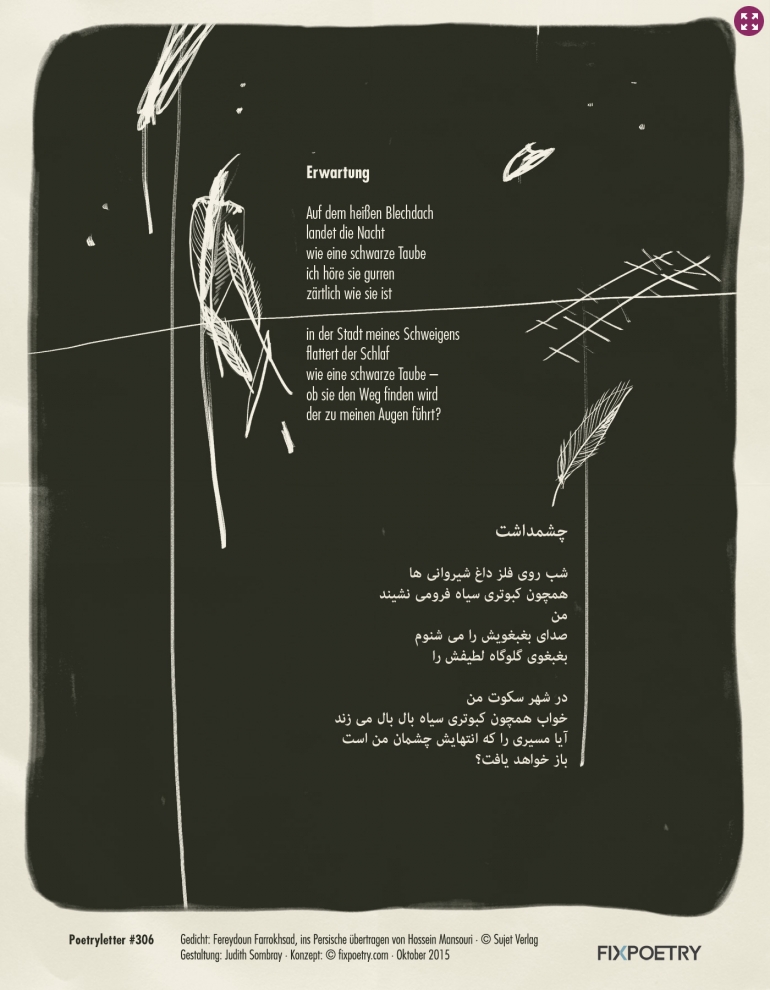 Erwartung
Auf dem heißen Blechdach
landet die Nacht
wie eine schwarze Taube
ich höre sie gurren
zärtlich wie sie ist
in der Stadt meines Schweigens
flattert der Schlaf
wie eine schwarze Taube –
ob sie den Weg finden wird
der zu meinen Augen führt?
چشمداشت
شب روی فلز داغ شیروانی ها
همچون کبوتری سیاه فرومی نشیند
من
صدای بغبغویش را می شنوم
بغبغوی گلوگاه لطیفش را
در شهر سکوت من
خواب همچون کبوتری سیاه بال بال می زند
آیا مسیری را که انتهایش چشمان من است
باز خواهد یافت؟
Poetryletter #306
Gedicht: Fereydoun Farrokhsad, ins Persische übertragen von Hossein Mansouri · © Sujet Verlag
Gestaltung: Judith Sombray · Konzept: © fixpoetry.com · Oktober 2015
FIXPOETRY